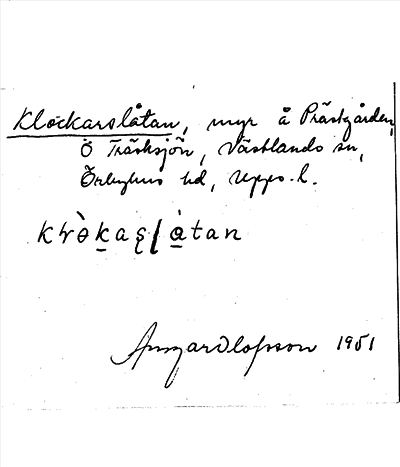 Klockarslåtan, myr å Prästgården,
Ö Träsksjön, Västlands sn,
Örbyhus hd, Upps. l.
1951